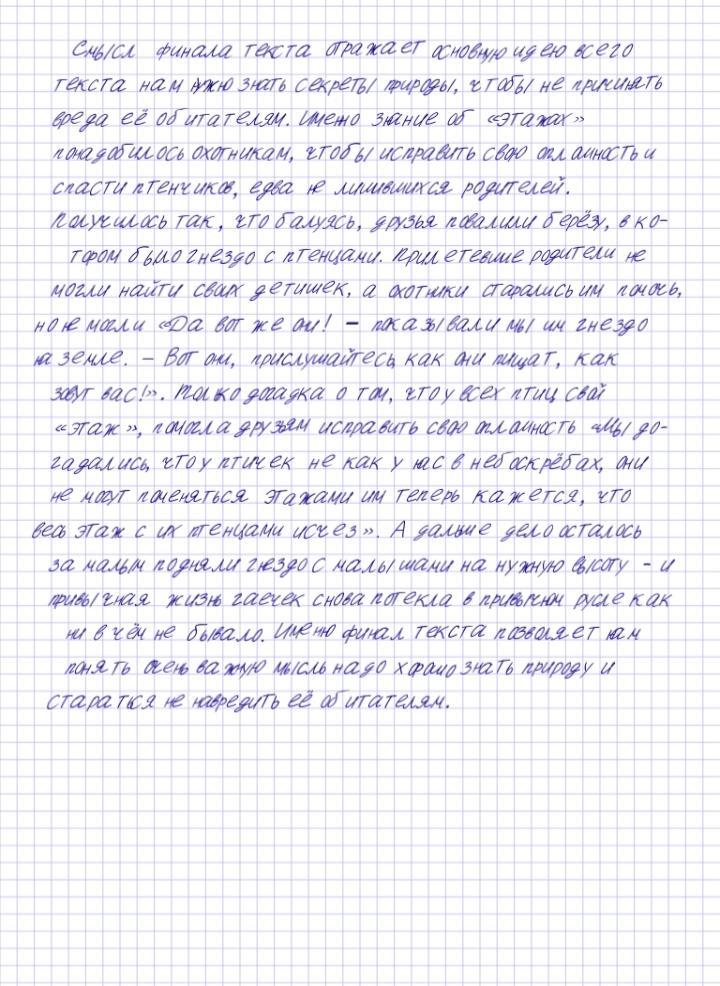 Смысл финала текста отражает основную идею всего
текста нам нужно знать секреты природы, чтобы не причинять
вреда её обитателям. Именно знание об «этажах»
понадобилось охотникам, чтобы исправить свою оплошность и
спасти птенчиков, едва не лишившихся родителей.
Получилось так, что балуясь, друзья повалили берёзу, в ко-
тором было гнездо с птенцами. Прилетевшие родители не
могли найти своих детишек, а охотники старались им помочь,
но не могли «Да вот же они! – показывали мы им гнездо
на земле. – Вот они, прислушайтесь, как они пищат, как
зовут вас!». Только догадка о том, что у всех птиц свой
«этаж», помогла друзьям исправить свою оплошность «Мы до-
гадались, что у птичек не как у нас в небоскрёбах, они
не могут поменяться этажами им теперь кажется, что
весь этаж с их птенцами исчез». А дальше дело осталось
за малым подняли гнездо с малышами на нужную высоту - и
привычная жизнь гаечек снова потекла в привычном русле как
ни в чём не бывало. Именно финал текста позволяет нам
понять очень важную мысль надо хорошо знать природу и
стараться не навредить её обитателям.